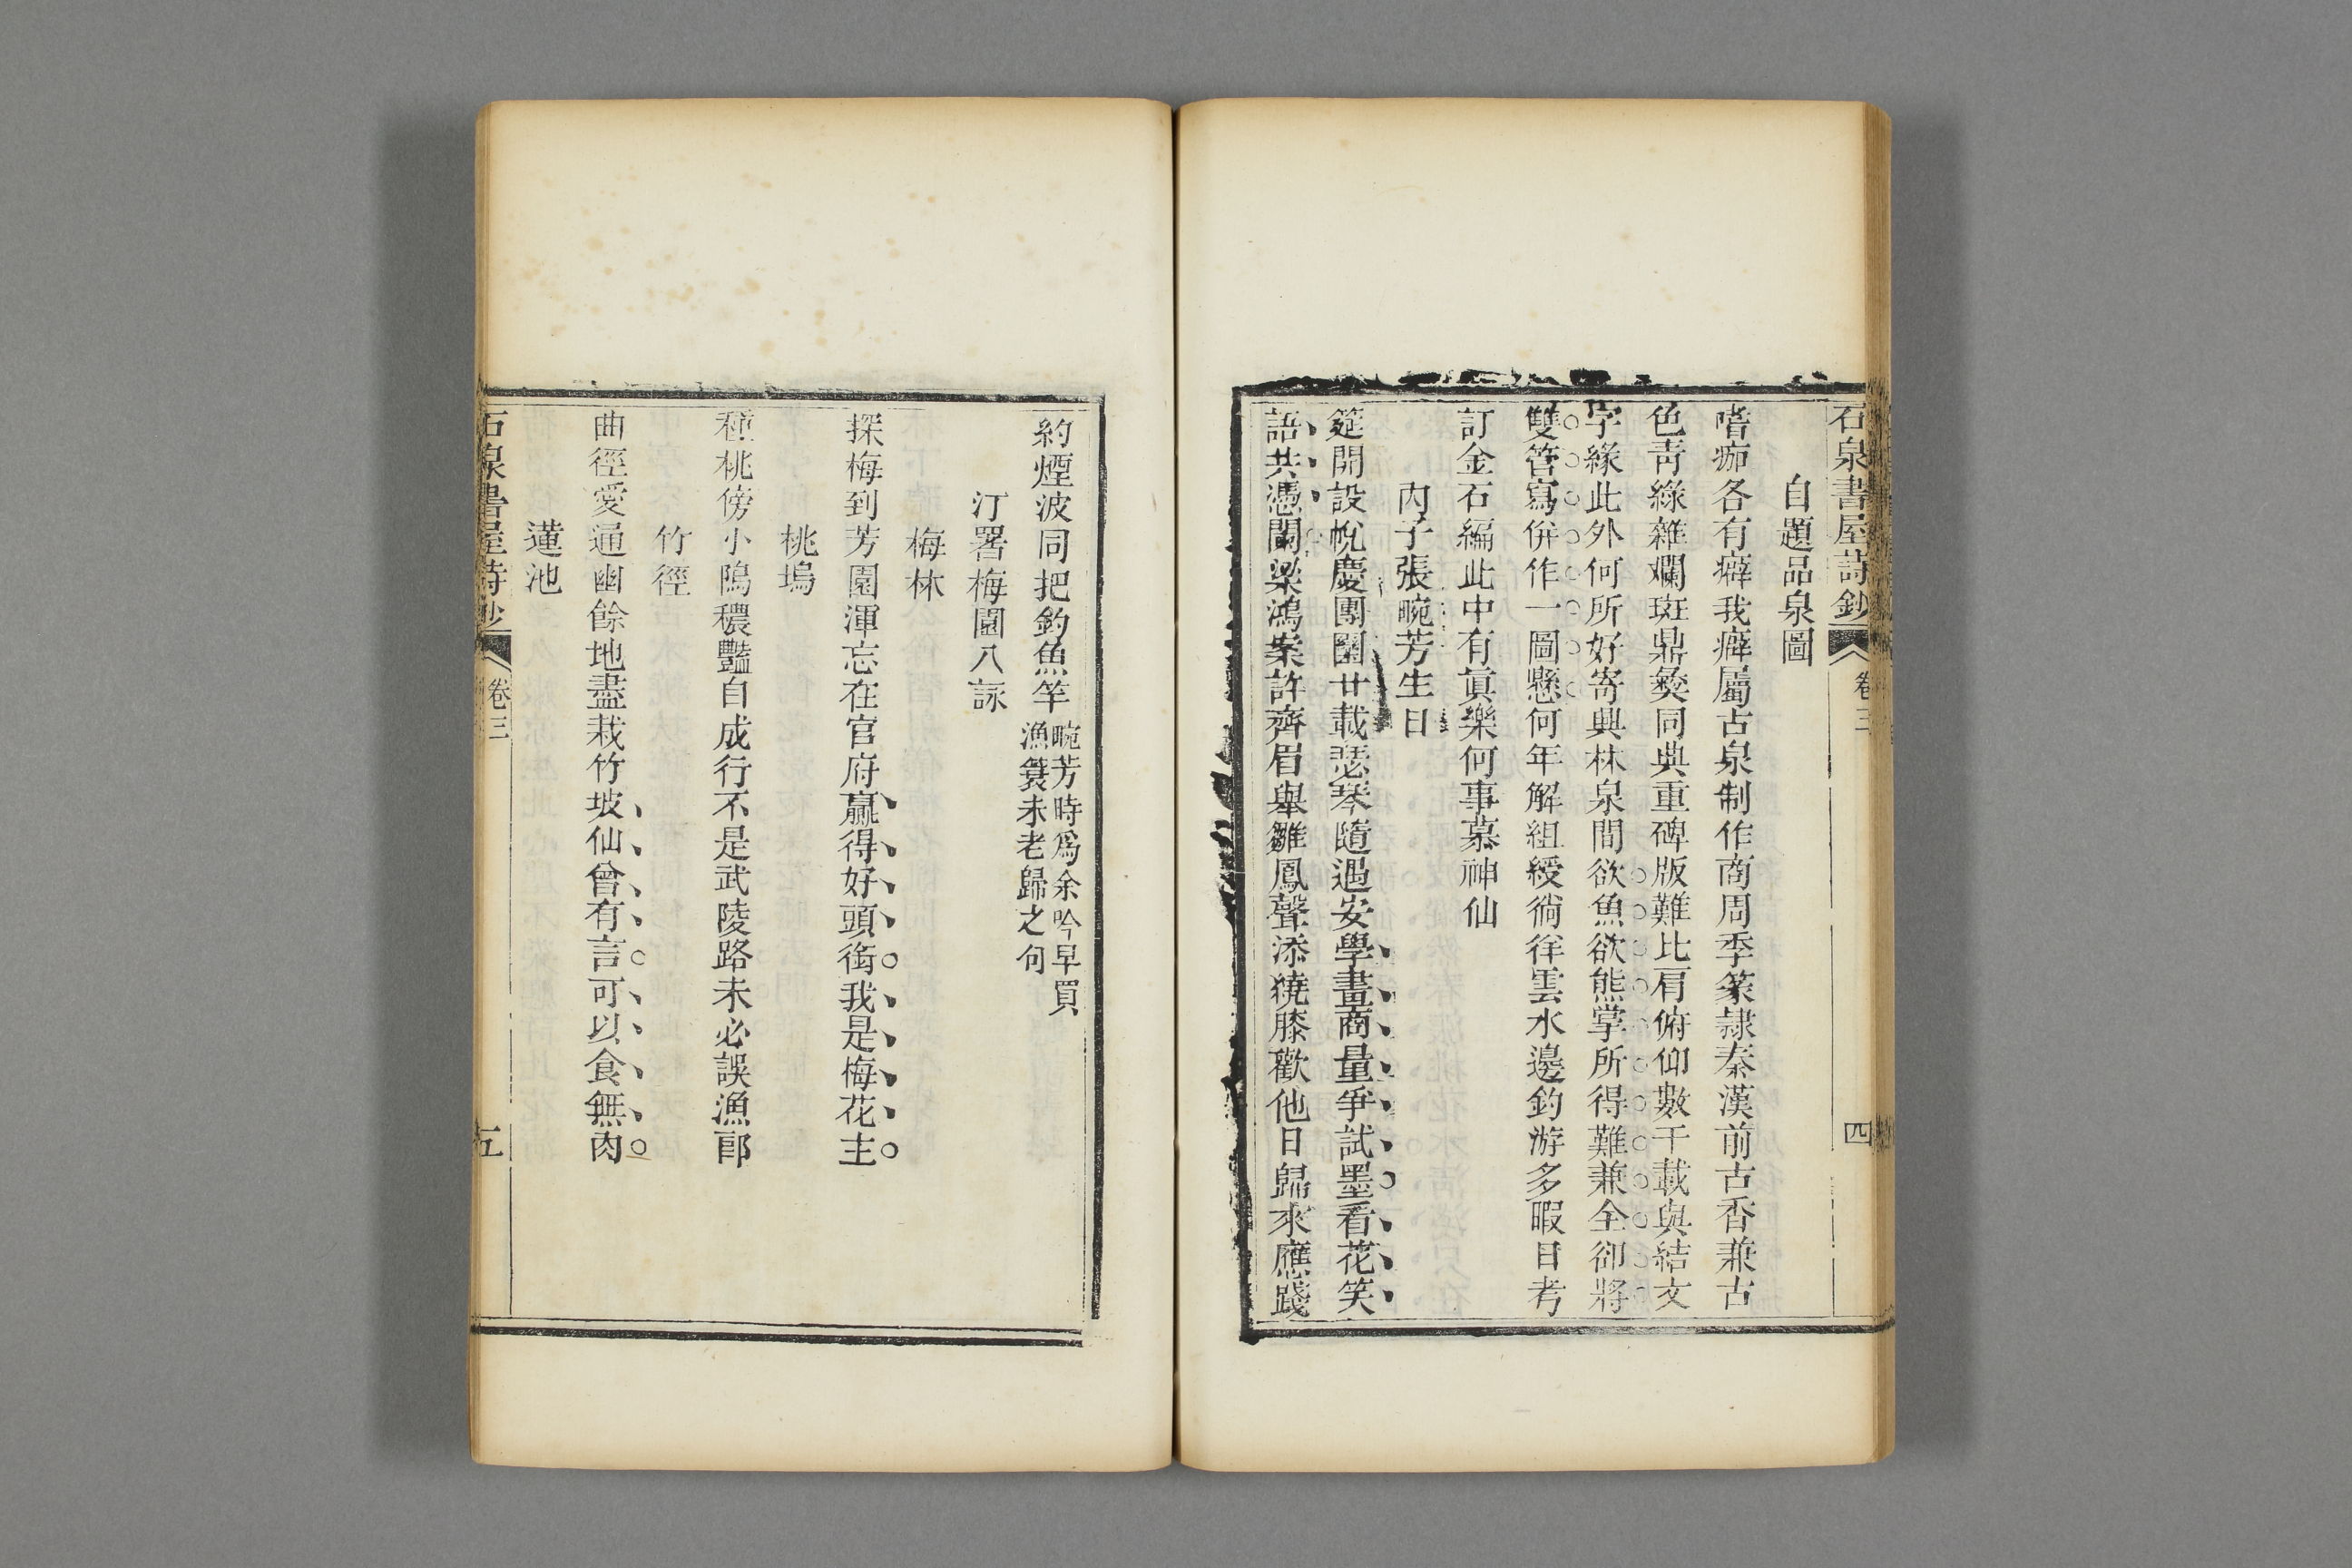 石泉書屋詩鈔
卷三
四
自題品泉圖
嗜痂各有癖我癖屬古泉制作商周季篆隷秦漢前古香兼古
色靑綠雜斕斑鼎彝同典重碑版難比肩俯仰數千載與結文
字緣此外何所好寄興林泉間欲魚欲熊掌所得難兼全卻將
雙管寫併作一圖懸何年解組綬徜徉雲水邊釣游多暇日考
訂金石編此中有眞樂何事慕神仙
內子張畹芳生日
筵開設帨慶團圞廿載瑟琴隨遇安學畫商量爭試墨看花笑
語共憑闌梁鴻案許齊眉舉雛鳳聲添繞膝歡他日歸來應踐
約煙波同把釣魚竿
畹芳時爲余吟早買
漁簑未老歸之句
汀署梅園八詠
梅林
探梅到芳園渾忘在官府贏得好頭銜我是梅花主
桃塢
種桃傍小隖穠豔自成行不是武陵路未必誤漁郎
竹徑
曲徑愛通幽餘地盡栽竹坡仙曾有言可以食無肉
蓮池
石泉書屋詩鈔
卷三
五